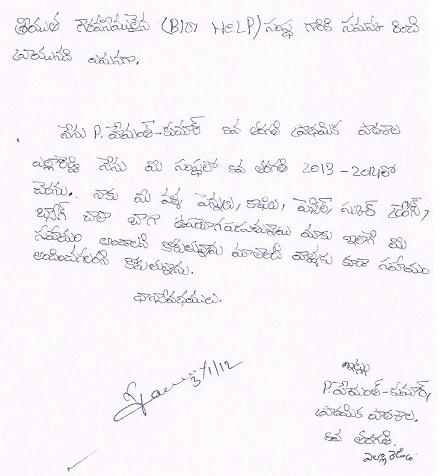 శ్రీయుత గౌరవనీయులైన (BIG HELP) సంస్థ గారికి నమస్క రించి
వ్రాయునది ఏమనగా.
నేను P. హేమంత్-కుమార్ 5వ తరగతి ప్రాథమిక పాఠశాల
ఎల్లారెడ్డి నేను మీ సంస్థలో 5వ తరగతి 2013 - 2014లో
చేరాను. నాకు మీ వల్ల పెన్నులు, కాపీలు, పెన్సిల్, స్కూల్ డ్రెస్,
బ్యాగ్ చాలా బాగా ఉపయోగపడుతున్నాయి మాకు ఇలాగే మీ
సహాయం అందాలని కోరుతున్నాను మాలాంటి వాళ్ళకు కూడా సహాయం
అందించగలరని కోరుతున్నాను.
ధన్యవాదములు.
3/1/12
ఇట్లు
P.హేమంత్-కుమార్,
ప్రాథమిక పాఠశాల.
5వ తరగతి.
ఎల్లారెడ్డి.